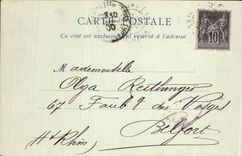 CARTE POSTALE
Ce côté est exclusivement réservé à l'adresse
10
Mademoiselle
Olga Reithinger
67 Faubg des Vosges
Belfort
Ht Rhin